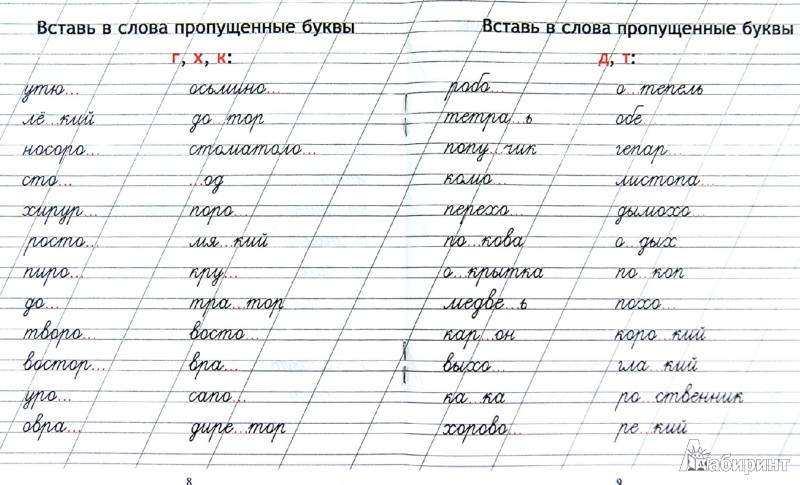 Вставь в слова пропущенные буквы
г, х, к:
утю... осьмино...
лё...кий до...тор
носоро... стоматоло...
сто... ...од
хирур... поро...
росто... мя...кий
пиро... кру...
до... тра...тор
творо... восто...
востор... вра...
уро... сапо...
овра... дире...тор
8
Вставь в слова пропущенные буквы
д, т:
робо... о...тепель
тетра...ь обе...
попу...чик гепар...
комо... листопа...
перехо... дымохо...
по...кова о...дых
о...крытка по...коп
медве...ь похо...
кар...он коро...кий
выхо... гла...кий
ка...ка ро...ственник
хорово... ре...кий
9
Лабиринт